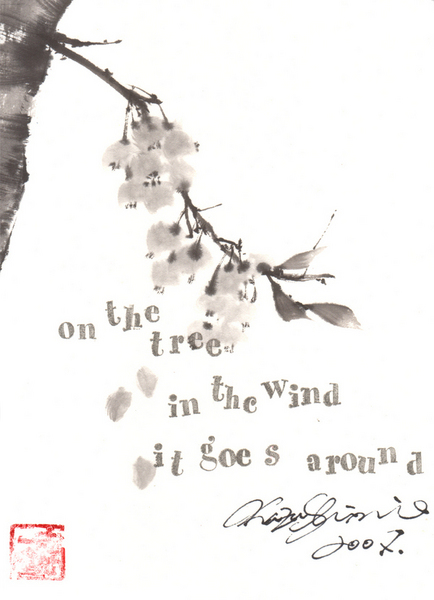 on the
tree
in the wind
it goes around
2007.